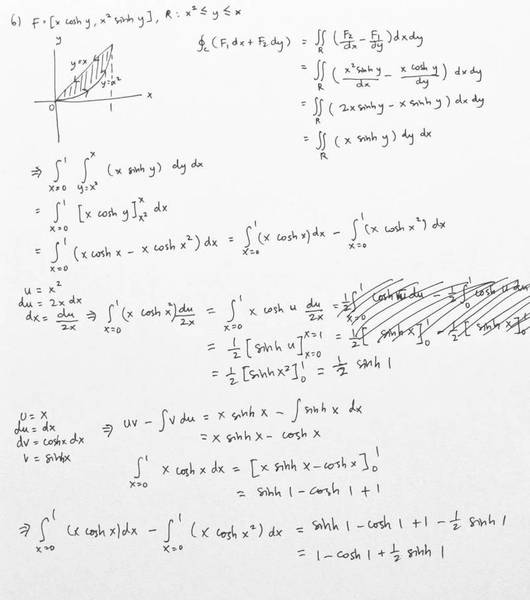 6) F = [x cosh y, x² sinh y], R: x² ≤ y ≤ x
y
y=x
y=x²
x
0
1
∮_C (F₁dx + F₂dy) = ∬_R (F₂/dx − F₁/dy) dx dy
= ∬_R (x² sinh y/dx − x cosh y/dy) dx dy
= ∬_R (2x sinh y − x sinh y) dx dy
= ∬_R (x sinh y) dy dx
⇒ ∫_{x=0}^{1} ∫_{y=x²}^{x} (x sinh y) dy dx
= ∫_{x=0}^{1} [x cosh y]_{x²}^{x} dx
= ∫_{x=0}^{1} (x cosh x − x cosh x²) dx = ∫_{x=0}^{1} (x cosh x) dx − ∫_{x=0}^{1} (x cosh x²) dx
u = x²
du = 2x dx
dx = du/2x ⇒ ∫_{x=0}^{1} (x cosh x²) du/2x = ∫_{x=0}^{1} x cosh u du/2x
= 1/2 [sinh u]_{x=0}^{x=1}
= 1/2 [sinh x²]_0^1 = 1/2 sinh 1
u = x
du = dx
dv = cosh x dx
v = sinh x
⇒ uv − ∫v du = x sinh x − ∫sinh x dx
= x sinh x − cosh x
∫_{x=0}^{1} x cosh x dx = [x sinh x − cosh x]_0^1
= sinh 1 − cosh 1 + 1
⇒ ∫_{x=0}^{1} (x cosh x) dx − ∫_{x=0}^{1} (x cosh x²) dx = sinh 1 − cosh 1 + 1 − 1/2 sinh 1
= 1 − cosh 1 + 1/2 sinh 1